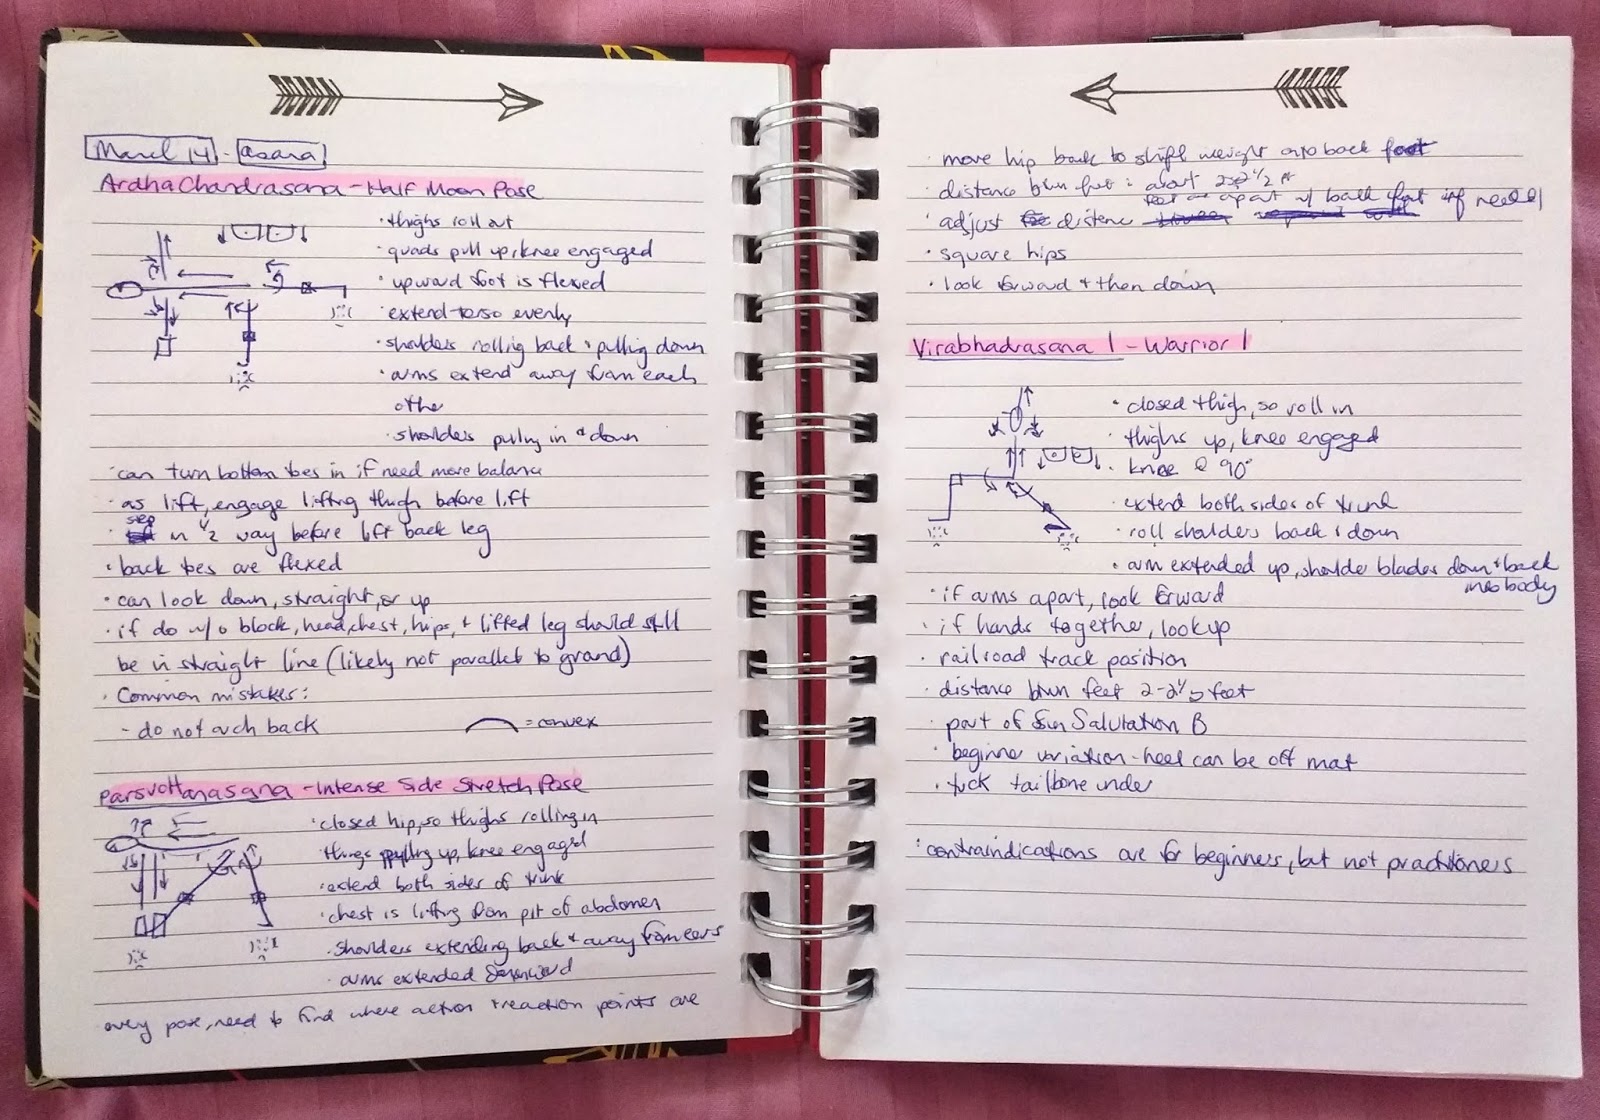 March 14 - asana
Ardha Chandrasana - Half Moon Pose
· thighs roll out
· quads pull up, knee engaged
· upward foot is flexed
· extend torso evenly
· shoulders rolling back & pulling down
· arms extend away from each
other
· shoulders pulling in & down
· can turn bottom toes in if need more balance
· as lift, engage lifting thigh before lift
· step in 1/2 way before lift back leg
· back toes are flexed
· can look down, straight, or up
· if do w/o block, head, chest, hips, & lifted leg should still
be in straight line (likely not parallel to ground)
· Common mistakes:
- do not arch back
= convex
Parsvottanasana - Intense Side Stretch Pose
· closed hip, so thighs rolling in
· things pulling up, knee engaged
· extend both sides of trunk
· chest is lifting from pit of abdomen
· shoulders extending back & away from ears
· arms extended downward
every pose, need to find where action & reaction points are
· move hip back to shift weight onto back foot
· distance b/wn feet: about 2 1/2 ft
· adjust distance apart w/ back foot if need
· square hips
· look forward & then down
Virabhadrasana 1 - Warrior 1
· closed thigh, so roll in
· thighs up, knee engaged
· knee @ 90°
· extend both sides of trunk
· roll shoulders back & down
· arm extended up, shoulder blades down & back
into body
· if arms apart, look forward
· if hands together, look up
· railroad track position
· distance b/wn feet 2-2 1/2 feet
· part of Sun Salutation B
· beginner variation - heel can be off mat
· tuck tailbone under
· contraindications are for beginners, but not practitioners